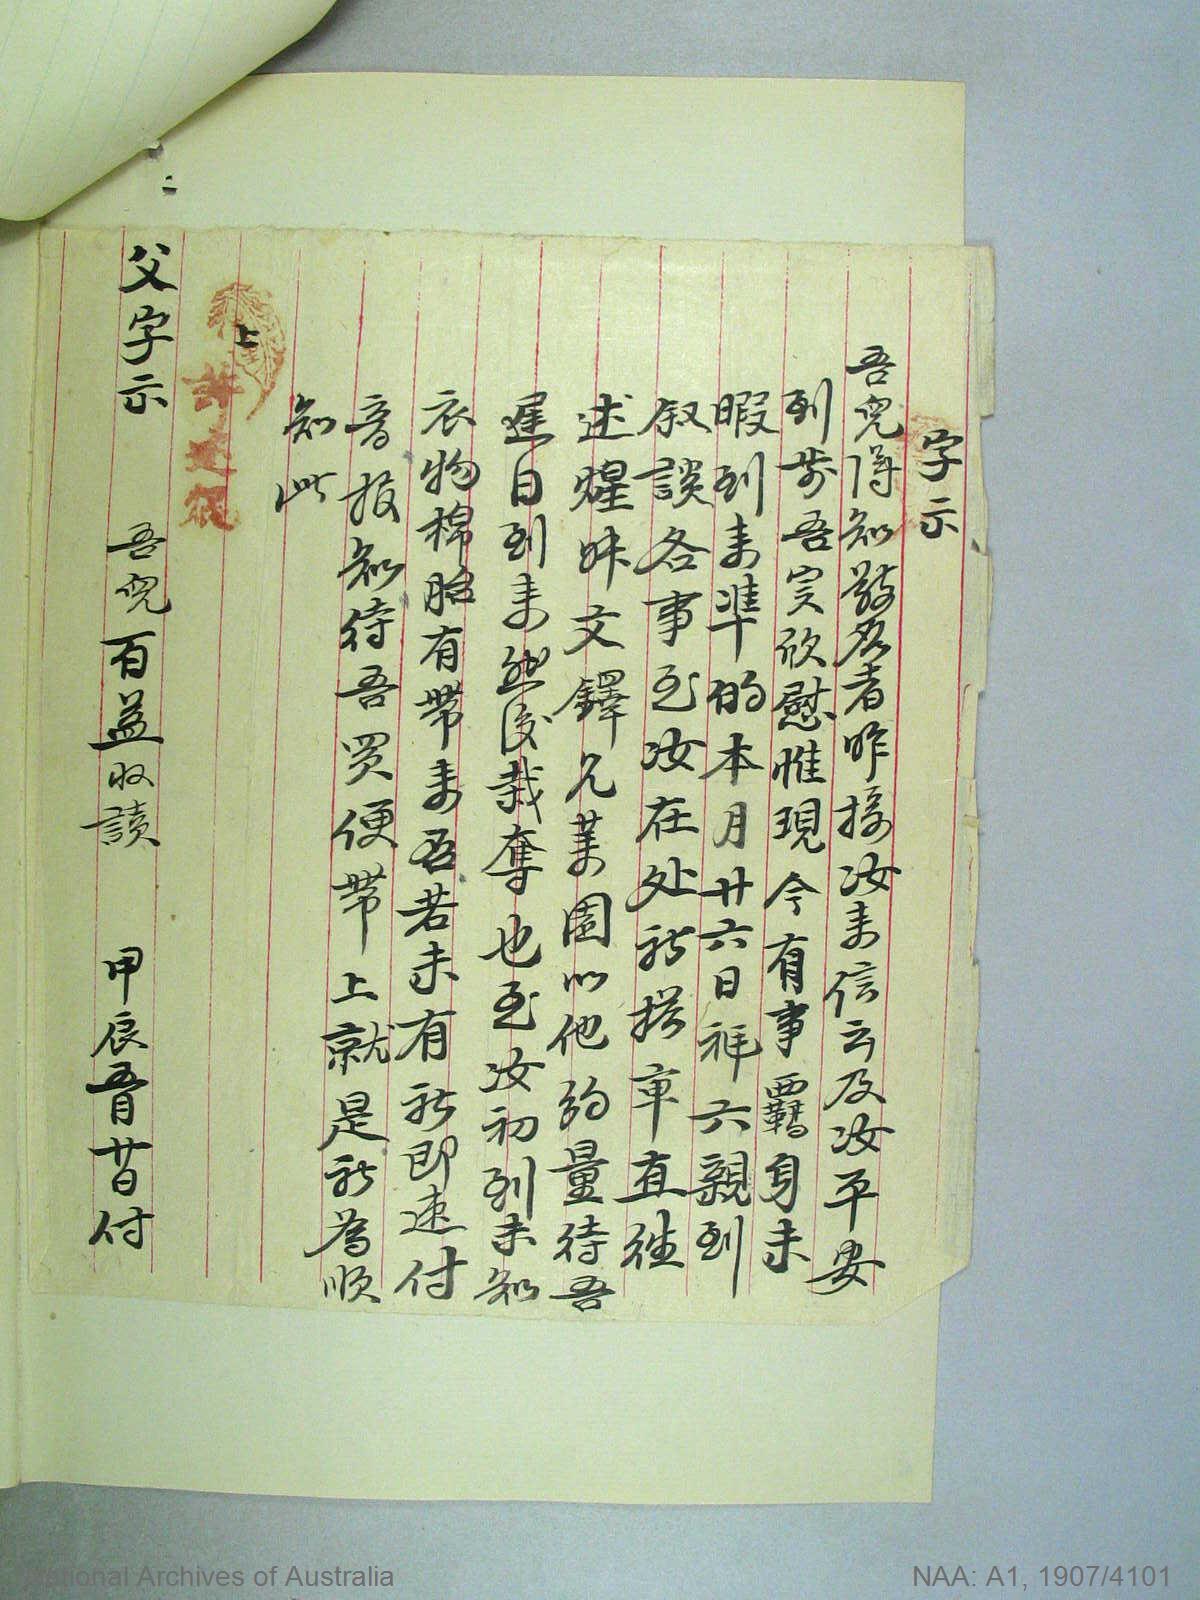 字示
吾兒得知啟者昨接汝來信云及汝平安
到步吾实欣慰惟現今有事羈身未
暇到來準的本月廿六日拜六親到
叙談各事至汝在处祈搭車直往
述煋昧文鐸兄菜園以他約量待吾
遲日到来然後裁奪也至汝初到未知
衣物棉胎有帶来否若未有祈即速付
音报知待吾买便帶上就是祈為順
知此
上
父字示 吾兒百益收讀 甲辰五月廿日付
National Archives of Australia
NAA: A1, 1907/4101